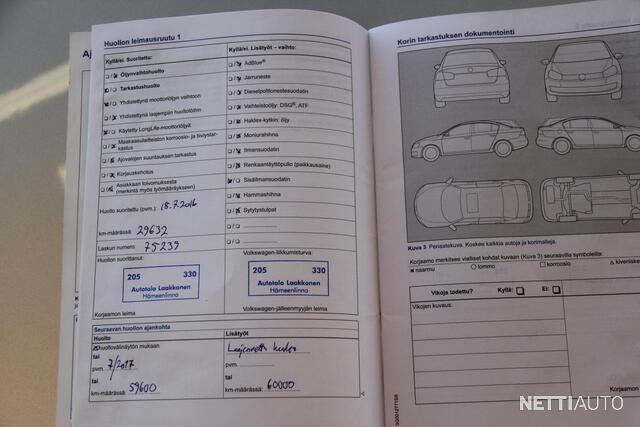 Huollon leimausruutu 1
Kyllä/ei. Suoritettu:
Öljynvaihtohuolto
Tarkastushuolto
Yhdistettynä moottoriöljyn vaihtoon
Yhdistettynä laajempiin huoltotöihin
Käytetty LongLife-moottoriöljyä
Maakaasulaitteiston korroosio- ja tiiviystarkastus
Ajovalojen suuntauksen tarkastus
Korjauskehotus
Asiakkaan toivomuksesta
(merkintä myös työmääräykseen)
Huolto suoritettu (pvm.): 18.7.2016
km-määrässä: 29632
Laskun numero: 75239
Huollon suorittanut:
205 330
Autotalo Laakkonen
Hämeenlinna
Korjaamon leima
Kyllä/ei. Lisätyöt – vaihto:
AdBlue®
Jarruneste
Dieselpolttonestesuodatin
Vaihteistoöljy: DSG®, ATF
Haldex-kytkin: öljy
Moniurahihna
Ilmansuodatin
Renkaantäyttöpullo (paikkausaine)
Sisäilmansuodatin
Hammashihna
Sytytystulpat
Volkswagen-liikkumisturva:
205 330
Autotalo Laakkonen
Hämeenlinna
Volkswagen-jälleenmyyjän leima
Seuraavan huollon ajankohta
Huolto
huoltovälinäytön mukaan
tai
pvm. 7/2017
tai
km-määrässä: 59600
Lisätyöt
Laajennettu
pvm.
tai
km-määrässä: 60000
Korin tarkastuksen dokumentointi
Kuva 3 Periaatekuva. Koskee kaikkia autoja ja korimalleja.
Korjaamo merkitsee vialliset kohdat kuvaan (Kuva 3) seuraavilla symboleilla:
× naarmu ○ lommo □ korroosio △ kiveniske
Vikoja todettu? Kyllä: Ei:
Vikojen kuvaus:
Korjaamon
NETTIAUTO